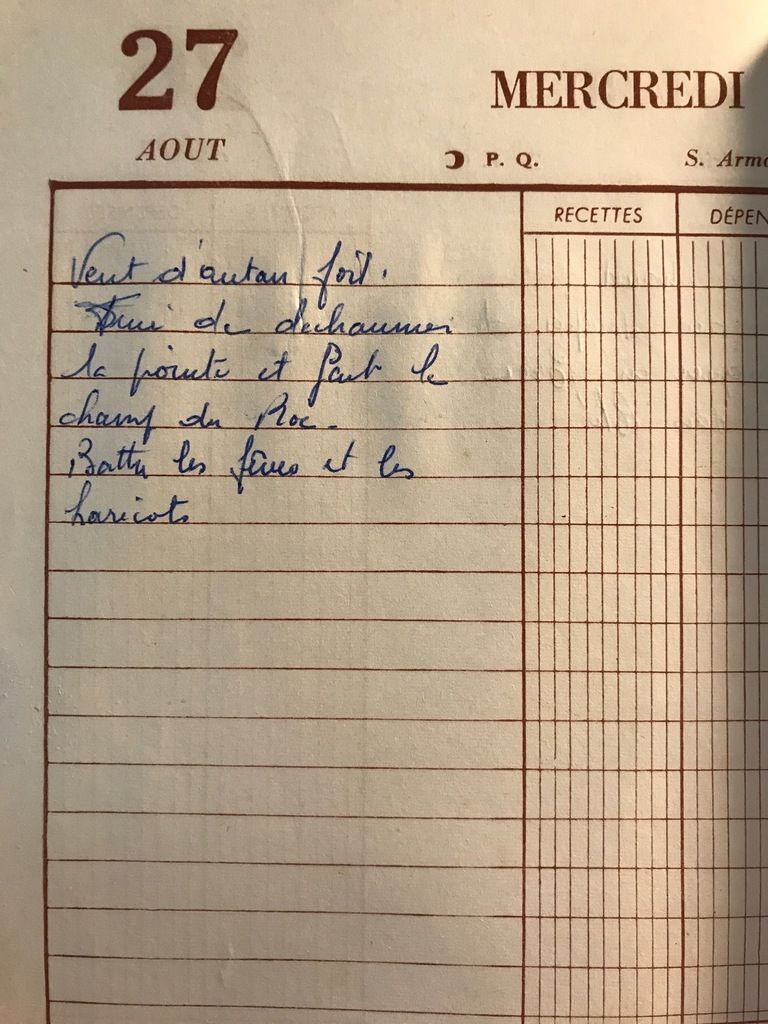 27
MERCREDI
AOUT
P. Q.
S. Arm
RECETTES
DÉPEN
Vent d'autan fort.
Fini de dechaumer
la pointe et fait le
champ du Roc.
Battu les fèves et les
haricots